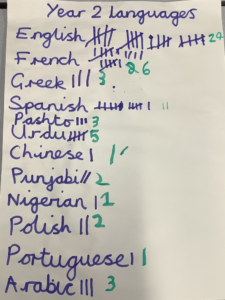 Year 2 Languages
English 24
French 26
Greek 3
Spanish 11
Pashto 3
Urdu 5
Chinese 1
Punjabi 2
Nigerian 1
Polish 2
Portuguese 1
Arabic 3